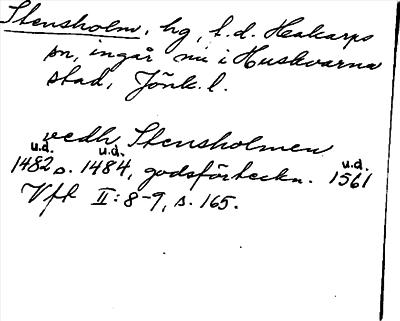 Stensholm, hg, f.d. Hakarps
sn, ingår nu i Huskvarna
stad, Jönk. l.
vedh Stensholmen
u.d. u.d. u.d.
1482 o. 1484, godsförteckn. 1561
Vfk II: 8-9, s. 165.